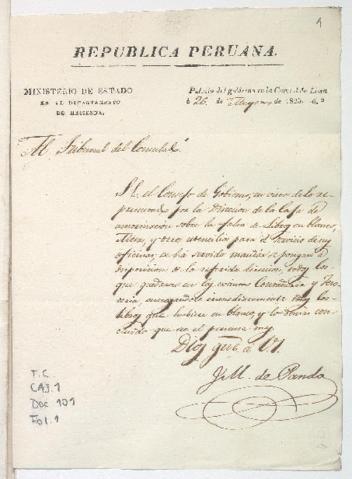 1
REPUBLICA PERUANA.
MINISTERIO DE ESTADO
EN EL DEPARTAMENTO
DE HACIENDA.
Palacio del gobierno en la Capital de Lima
á 26 de Mayo de 1825.
Al Tribunal del Consulado
S. E. el Consejo de Gobierno, en vista de lo re-
por la Direccion de la Casa de
sobre la falta de libros en blanco,
y otros utencilios para el servicio de sus
oficinas, se ha servido mandar se pongan á
disposicion de la referida direccion, todos los
que quedaron en las Contaduria y Teso-
reria, los
libros que hubiese en blanco, y lo demas con-
que no el
Dios gue. á VS.
J. M. de Pando
T.C.
CAJ. 1
Doc 101
Fol. 1